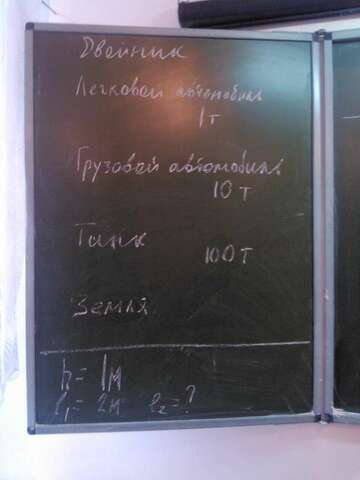 Двойник
Легковой автомобиль
1т
Грузовой автомобиль
10 т
Танк
100т
Земля
h = 1м
l₁ = 2м l₂ = ?